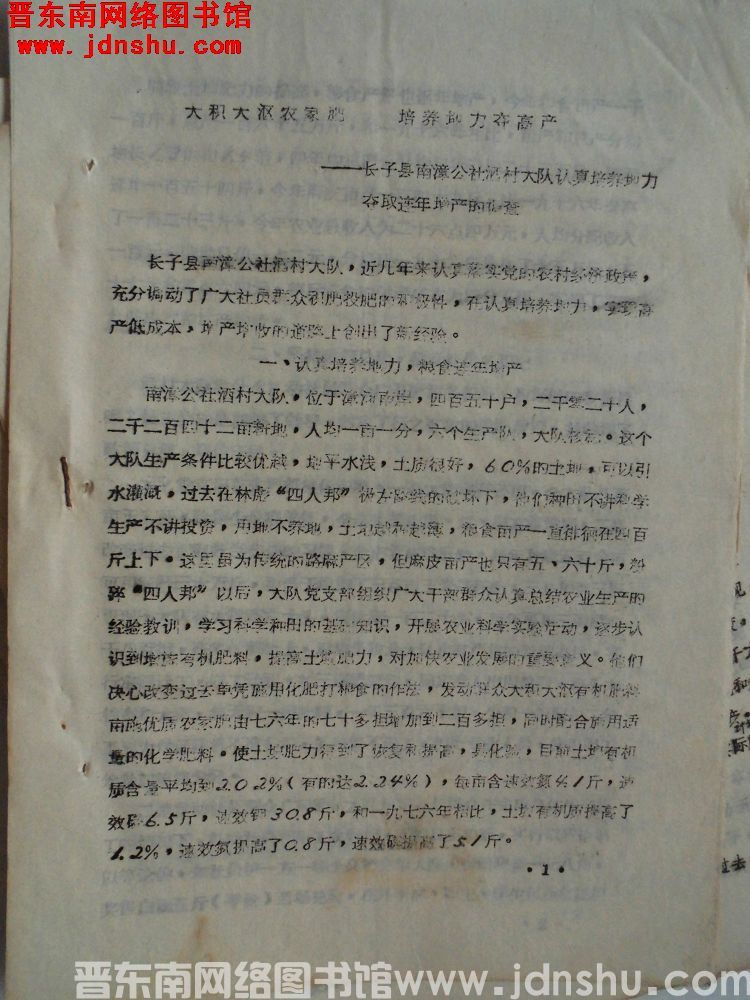 晋东南网络图书馆
www.jdnshu.com
大积大沤农家肥 培养地力夺高产
——长子县南漳公社酒村大队认真培养地力
夺取连年增产的调查
长子县南漳公社酒村大队，近几年来认真落实党的农村经济政策，
充分调动了广大社员群众积肥投肥的积极性，在认真培养地力，实现高
产低成本，增产增收的道路上创出了新经验。
一、认真培养地力，粮食连年增产
南漳公社酒村大队，位于漳河南岸，四百五十户，二千零二十人，
二千二百四十二亩耕地，人均一亩一分，六个生产队，大队核算。这个
大队生产条件比较优越，地平水浅，土质很好，60%的土地，可以引
水灌溉，过去在林彪“四人邦”极左路线的破坏下，他们种田不讲科学
生产不讲投资，用地不养地，土地越种越薄，粮食亩产一直徘徊在四百
斤上下。这里虽为传统的潞麻产区，但麻皮亩产也只有五、六十斤，粉
碎“四人邦”以后，大队党支部组织广大干部群众认真总结农业生产的
经验教训，学习科学种田的基础知识，开展农业科学实验活动，逐步认
识到增施有机肥料，提高土壤肥力，对加快农业发展的重要意义。他们
决心改变过去单凭施用化肥打粮食的作法，发动群众大积大沤有机肥料
亩施优质农家肥由七六年的七十多担增加到二百多担，同时配合施用适
量的化学肥料。使土壤肥力得到了恢复和提高，具化验，目前土壤有机
质含量平均到2.02%（有的达2.24%），每亩含速效氮41斤，速
效磷6.5斤，速效钾30.8斤，和一九七六年相比，土壤有机质提高了
1.2%，速效氮提高了0.8斤，速效磷提高了51斤。
·1·
过去
晋东南网络图书馆www.jdnshu.com